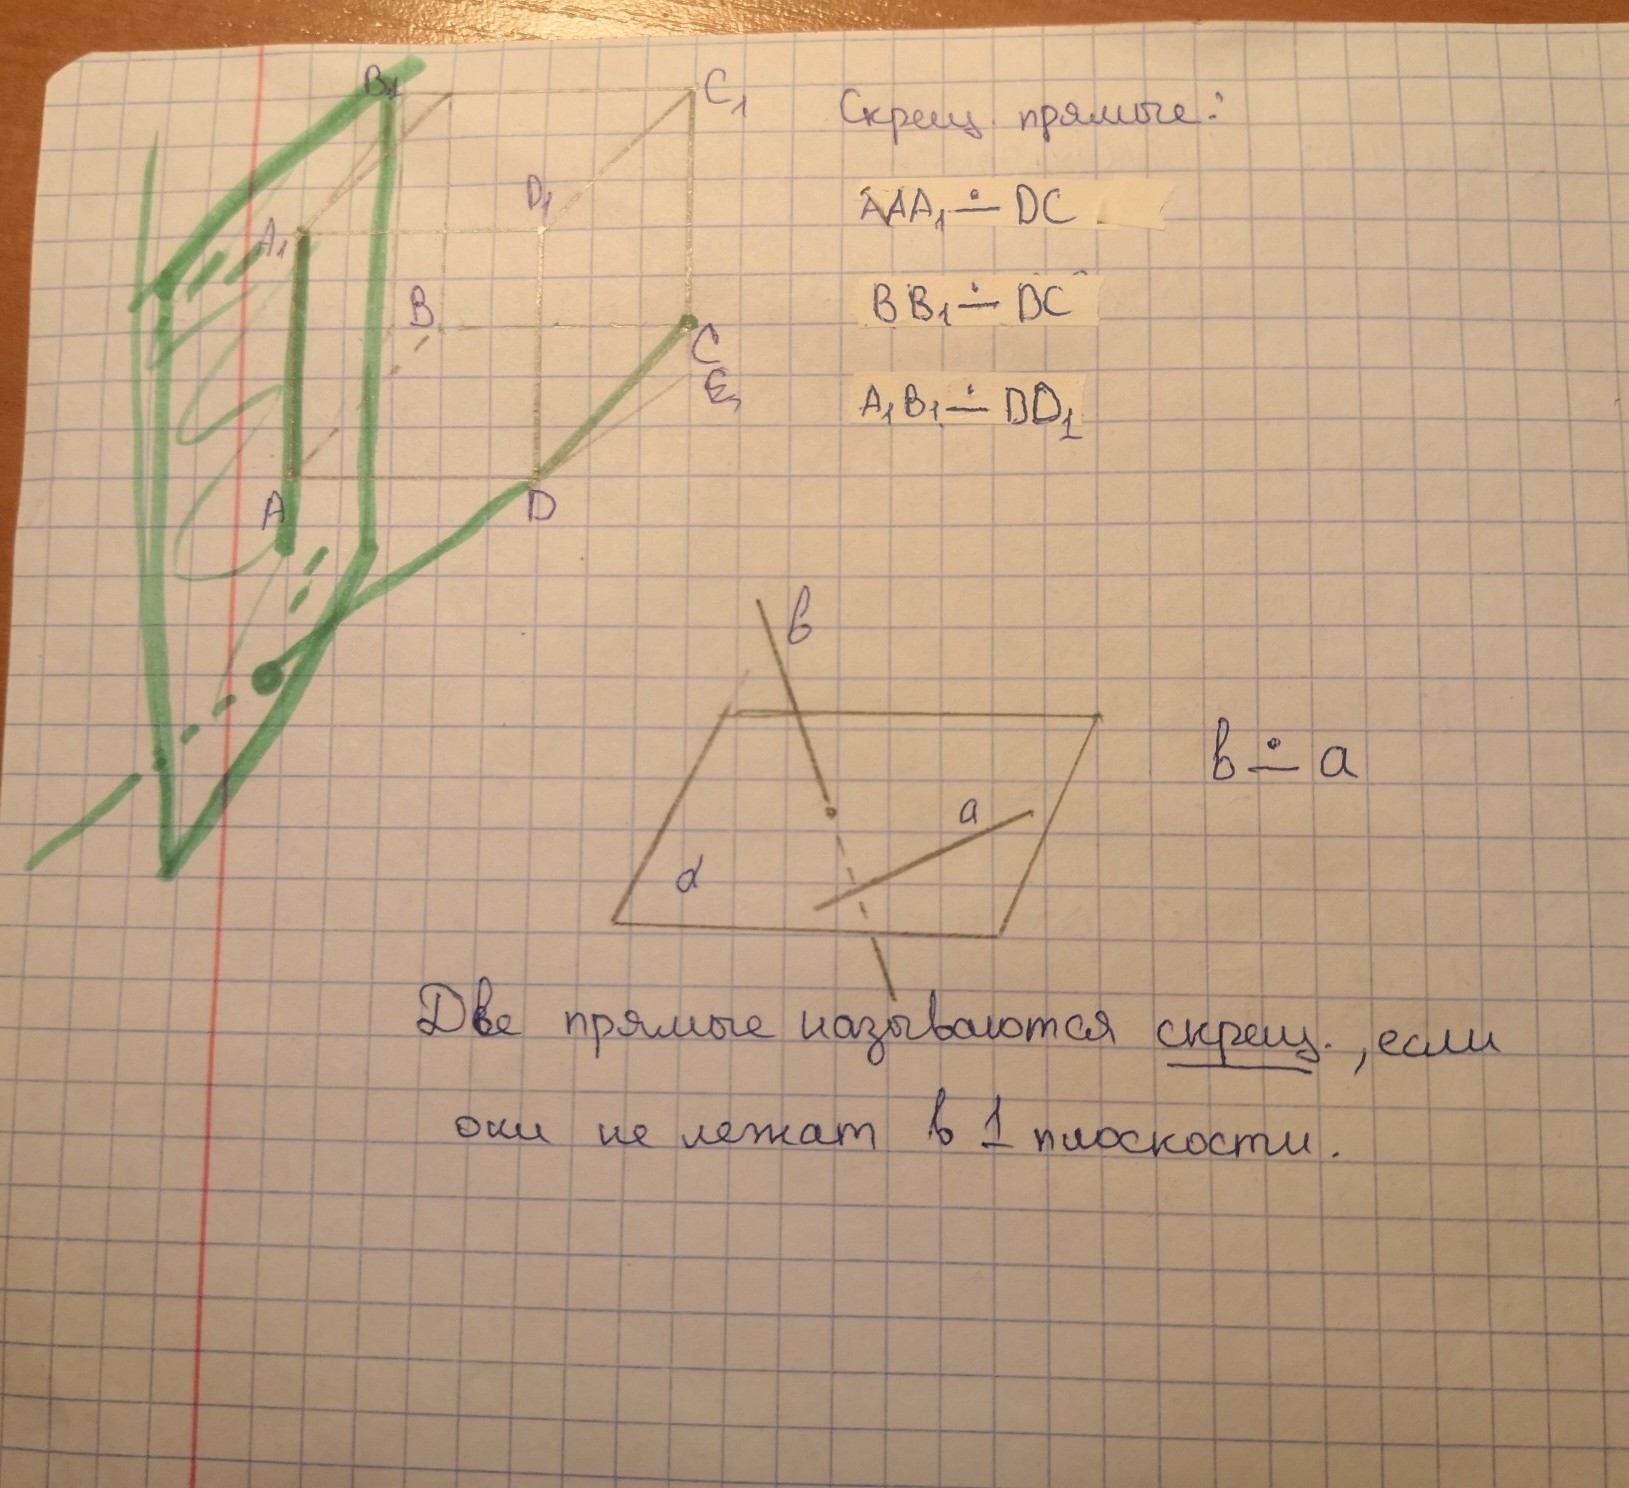 B₁
C₁
Скрещ. прямые:
D₁
A₁
AAA₁ ∸ DC
B
BB₁ ∸ DC
C
E₁
A₁B₁ ∸ DD₁
A
D
в
в ∸ a
a
α
Две прямые называются скрещ., если
они не лежат в 1 плоскости.